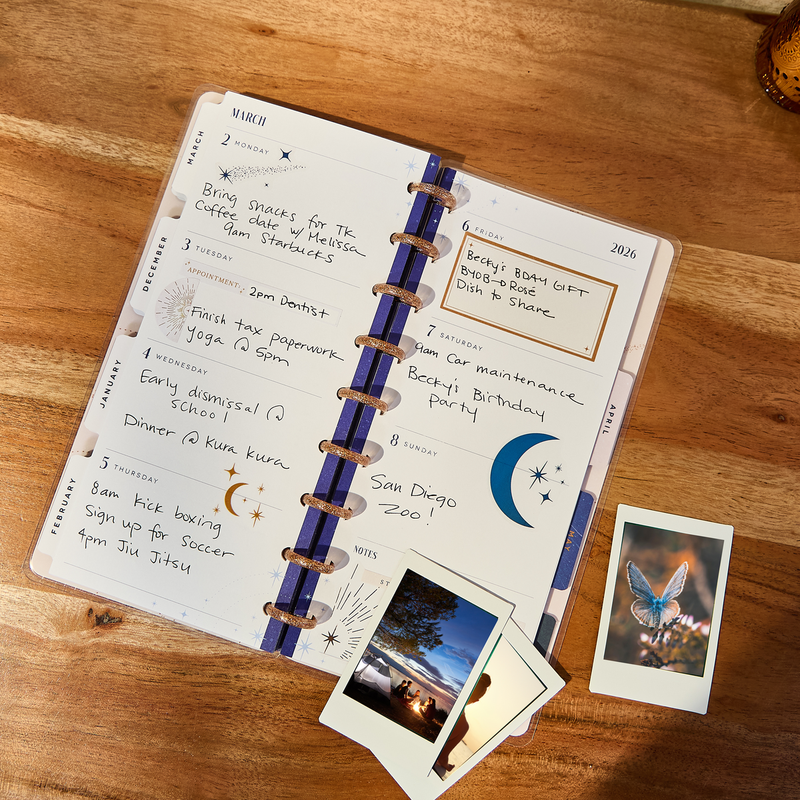 MARCH
MARCH
2 MONDAY
Bring snacks for TK
Coffee date w/ Melissa
9am Starbucks
DECEMBER
3 TUESDAY
APPOINTMENT:
2pm Dentist
Finish tax paperwork
yoga @ 5pm
JANUARY
4 WEDNESDAY
Early dismissal @
school
Dinner @ Kura Kura
FEBRUARY
5 THURSDAY
8am kick boxing
Sign up for Soccer
4pm Jiu Jitsu
2026
6 FRIDAY
Becky's BDAY GIFT
BYOB → Rosé
Dish to Share
7 SATURDAY
9am Car maintenance
Becky's Birthday
party
APRIL
8 SUNDAY
San Diego
Zoo!
MAY
NOTES